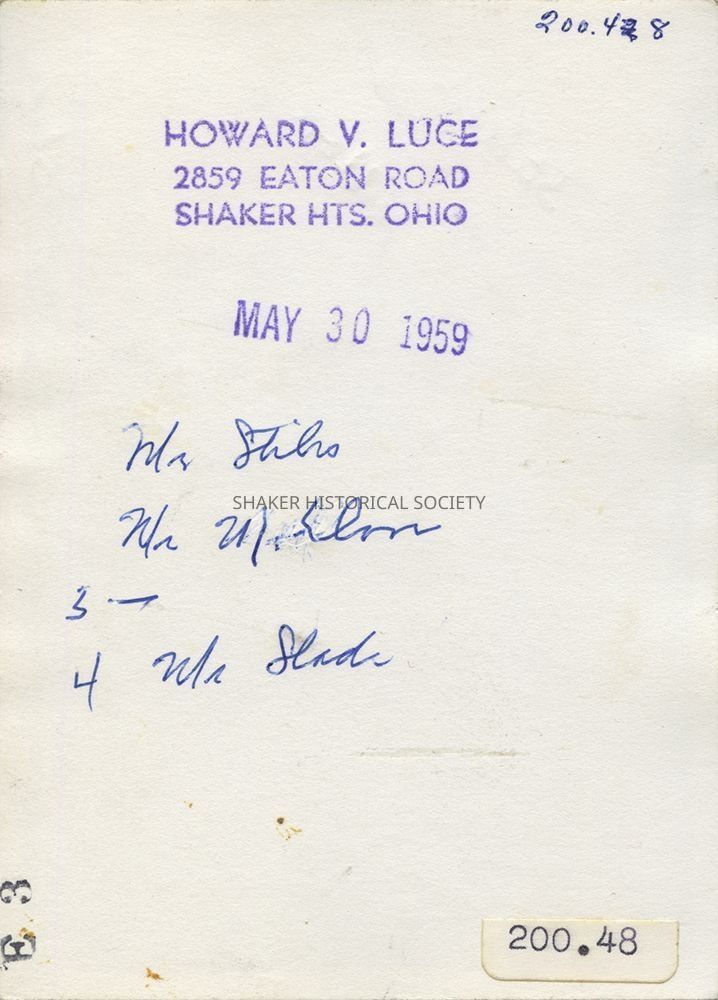 200.48
HOWARD V. LUCE
2859 EATON ROAD
SHAKER HTS. OHIO
MAY 30 1959
Mr Stibs
SHAKER HISTORICAL SOCIETY
Mr
3 —
4 Mr Slade
E 3
200.48